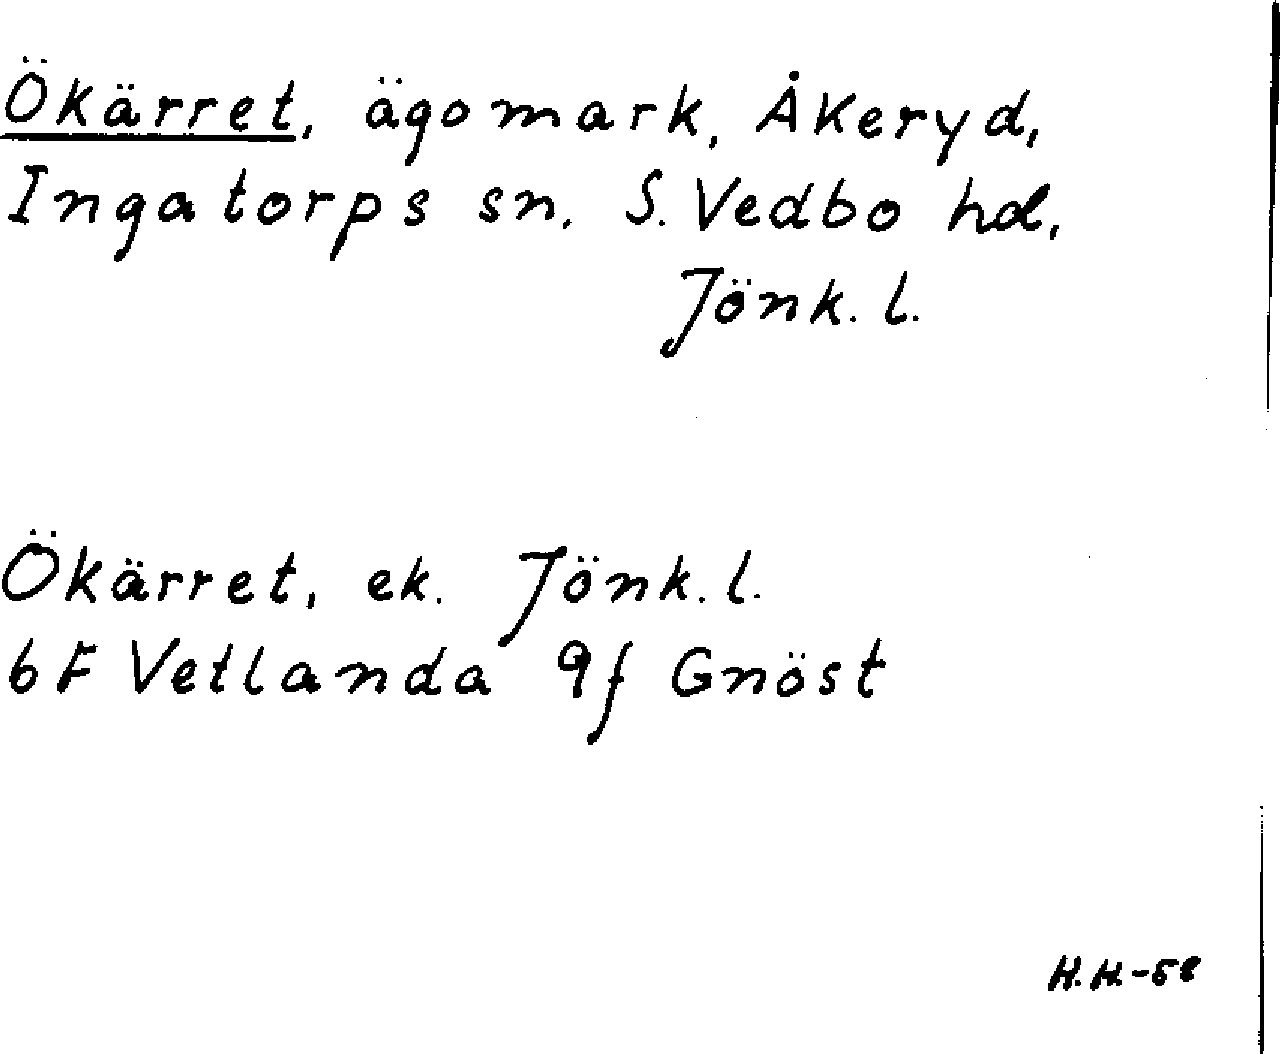 Ökärret, ägomark, Åkeryd,
Ingatorps sn. S. Vedbo hd,
Jönk. l.
Ökärret, ek. Jönk. l.
6F Vetlanda 9f Gnöst
H.H.-58